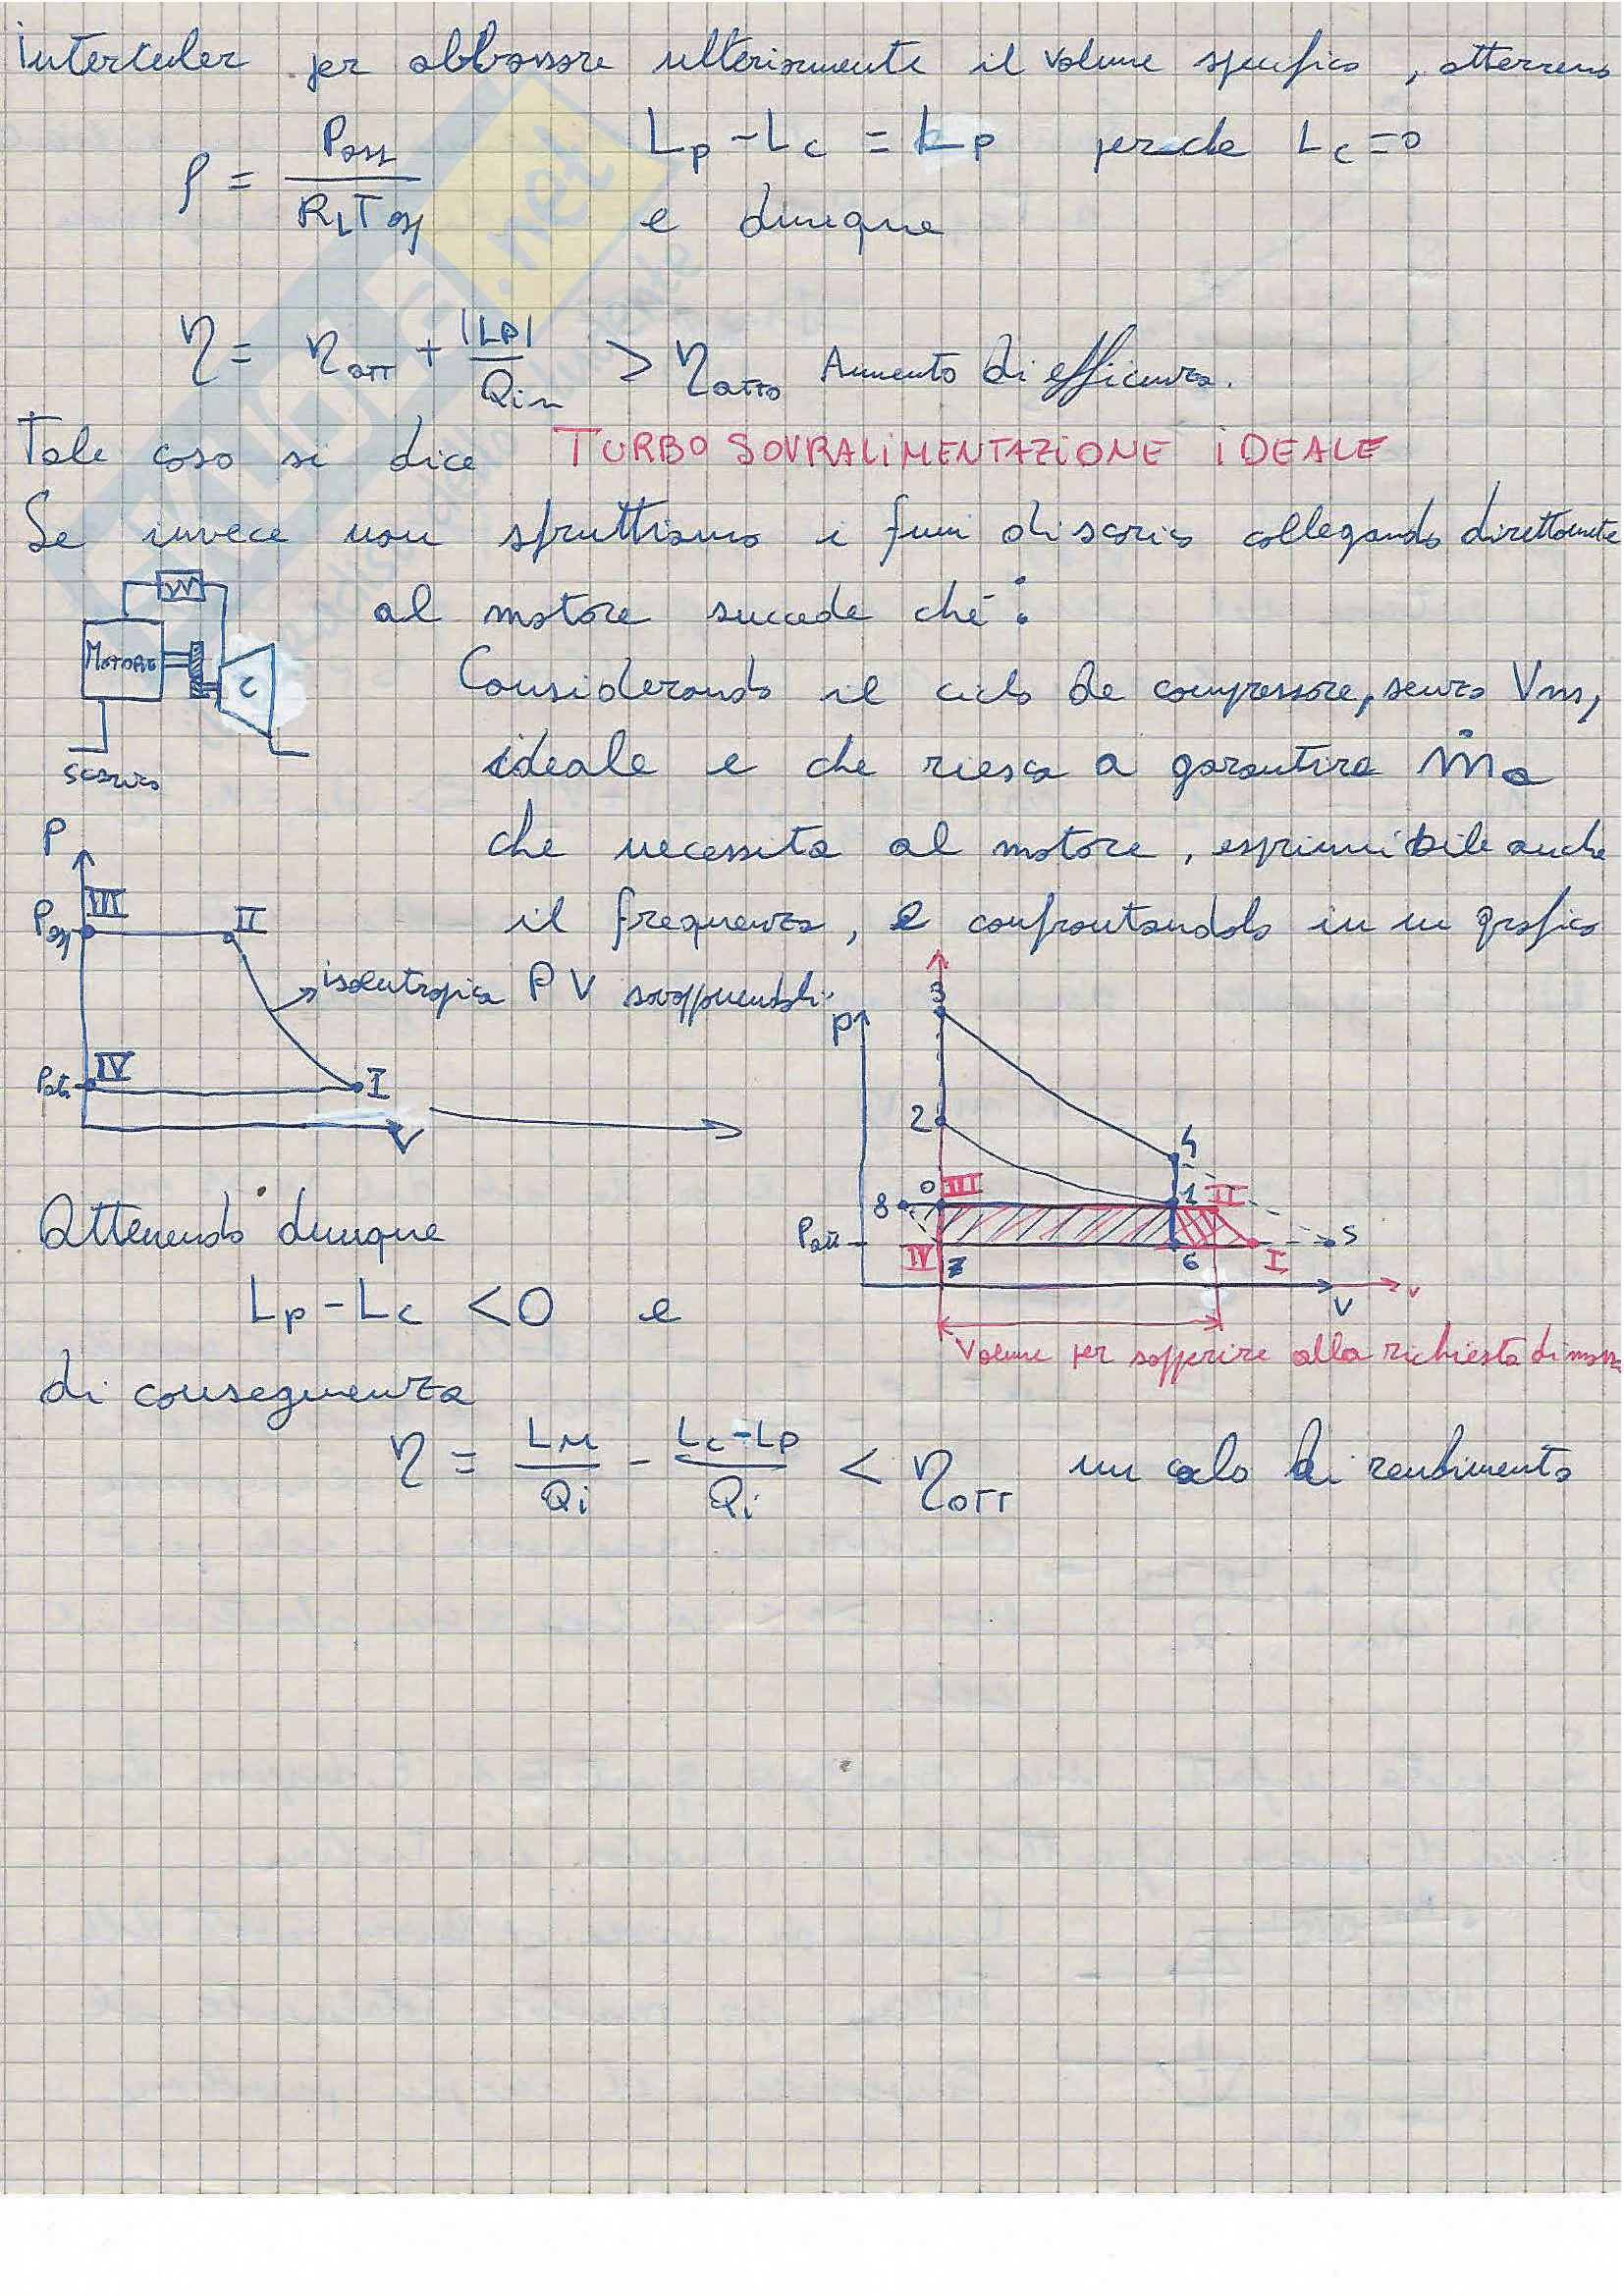 Intercooler per abbassare ulteriormente il volume specifico, otterremo
ρ = Pasp / R1 Tasp
Lp - Lc = Lp perche Lc = 0
e dunque
η = ηOTT + |LP| / Qin > ηOTTO Aumento di efficienza.
Tale caso si dice TURBO SOVRALIMENTAZIONE IDEALE
Se invece non sfruttiamo i fumi di scarico collegando direttamente
al motore succede che:
MOTORE
C
scarico
Considerando il ciclo de compressore, senza Vm,
ideale e che riesca a garantire ṁa
che necessita al motore, esprimibile anche
il frequenza, e confrontandolo in un grafico
P
Pasp
III
II
isoentropica PV sovrapponendoli:
Patm
IV
I
V
3
P
2
4
8
0
III
1
II
Patm
5
IV
7
6
I
V
v
Volume per sopperire alla richiesta di massa
Ottenendo dunque
Lp - Lc < 0 e
di conseguenza
η = LM / Qi - Lc - Lp / Qi < ηOTT un calo di rendimento
.net